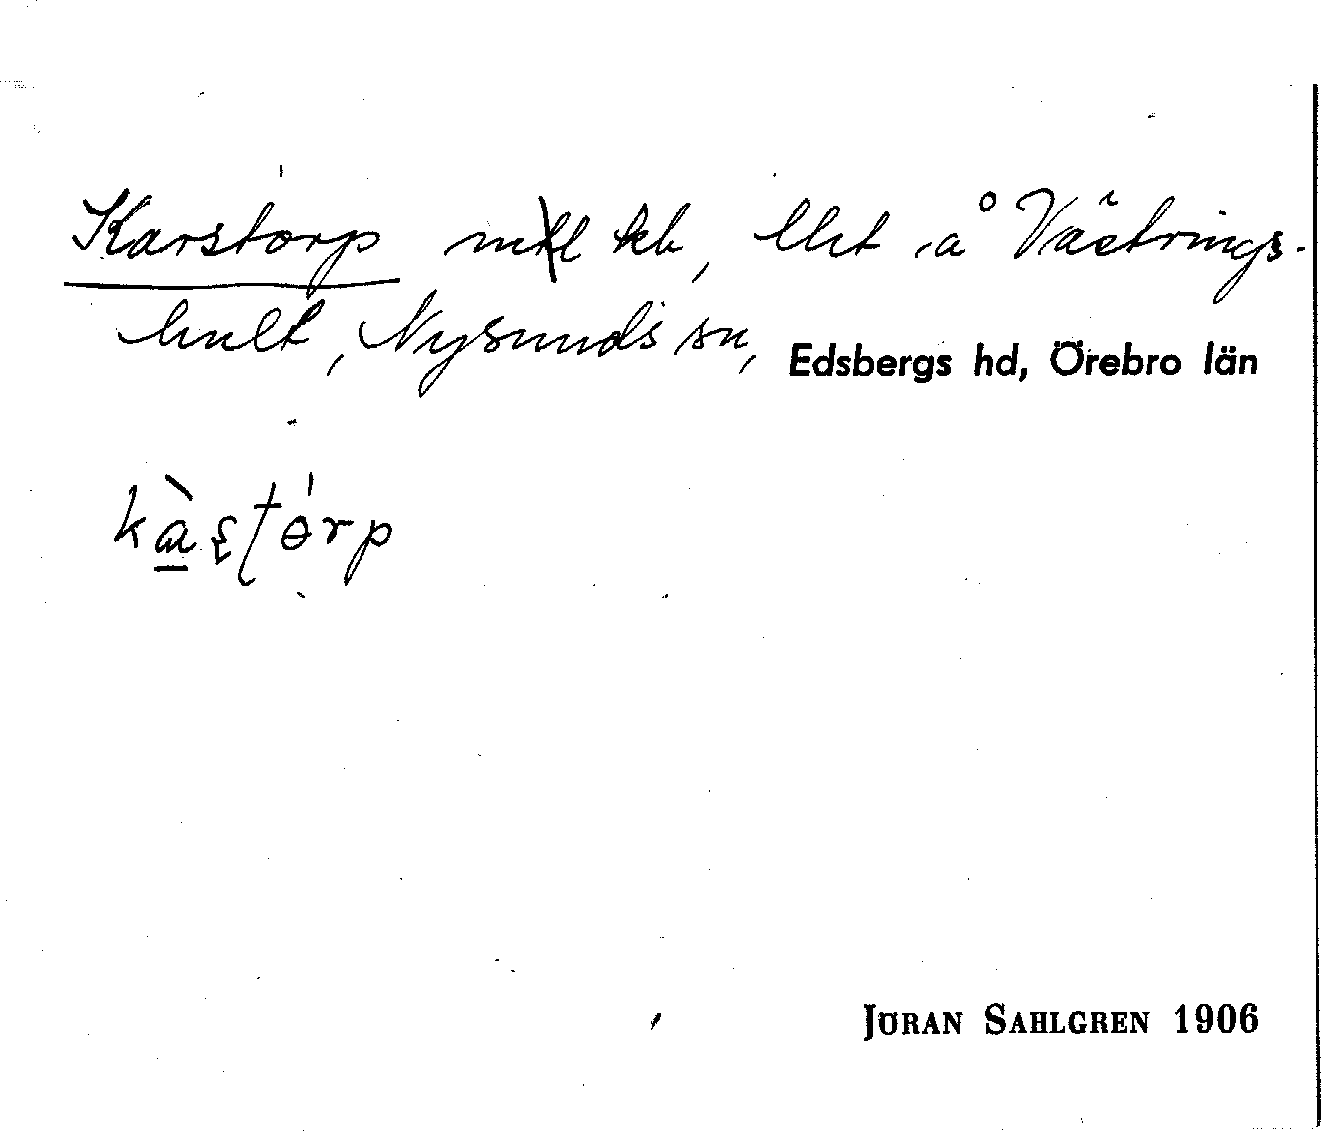 Karstorp lht å Västrings-
hult, Nysunds sn, Edsbergs hd, Örebro län
kàstórp
JÖRAN SAHLGREN 1906